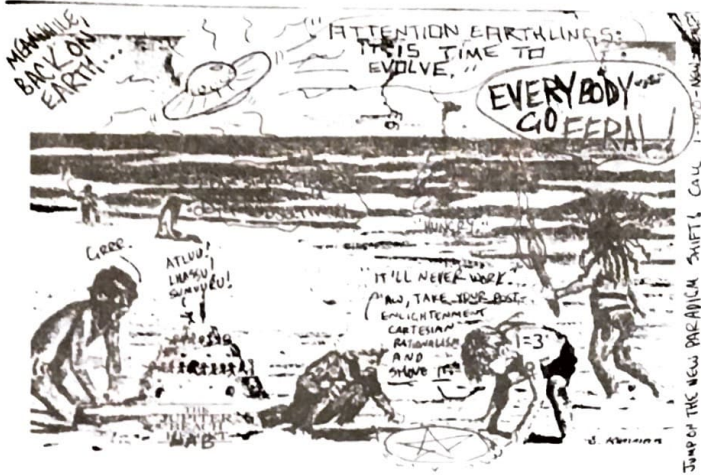 MEANWHILE,
BACK ON
EARTH...
ATTENTION EARTHLINGS:
IT IS TIME TO
EVOLVE."
EVERYBODY
GO FERAL!
"HUNGRY."
GRRR.
ATLUU!
LHASSU
SUMUURU!
"IT'LL NEVER WORK."
"AW, TAKE YOUR POST-
ENLIGHTENMENT
CARTESIAN
RATIONALISM
AND
SHOVE IT."
1=3
THE
JUPITER
BEACH
LAB
JUMP ON THE NEW PARADIGM SHIFT! CALL